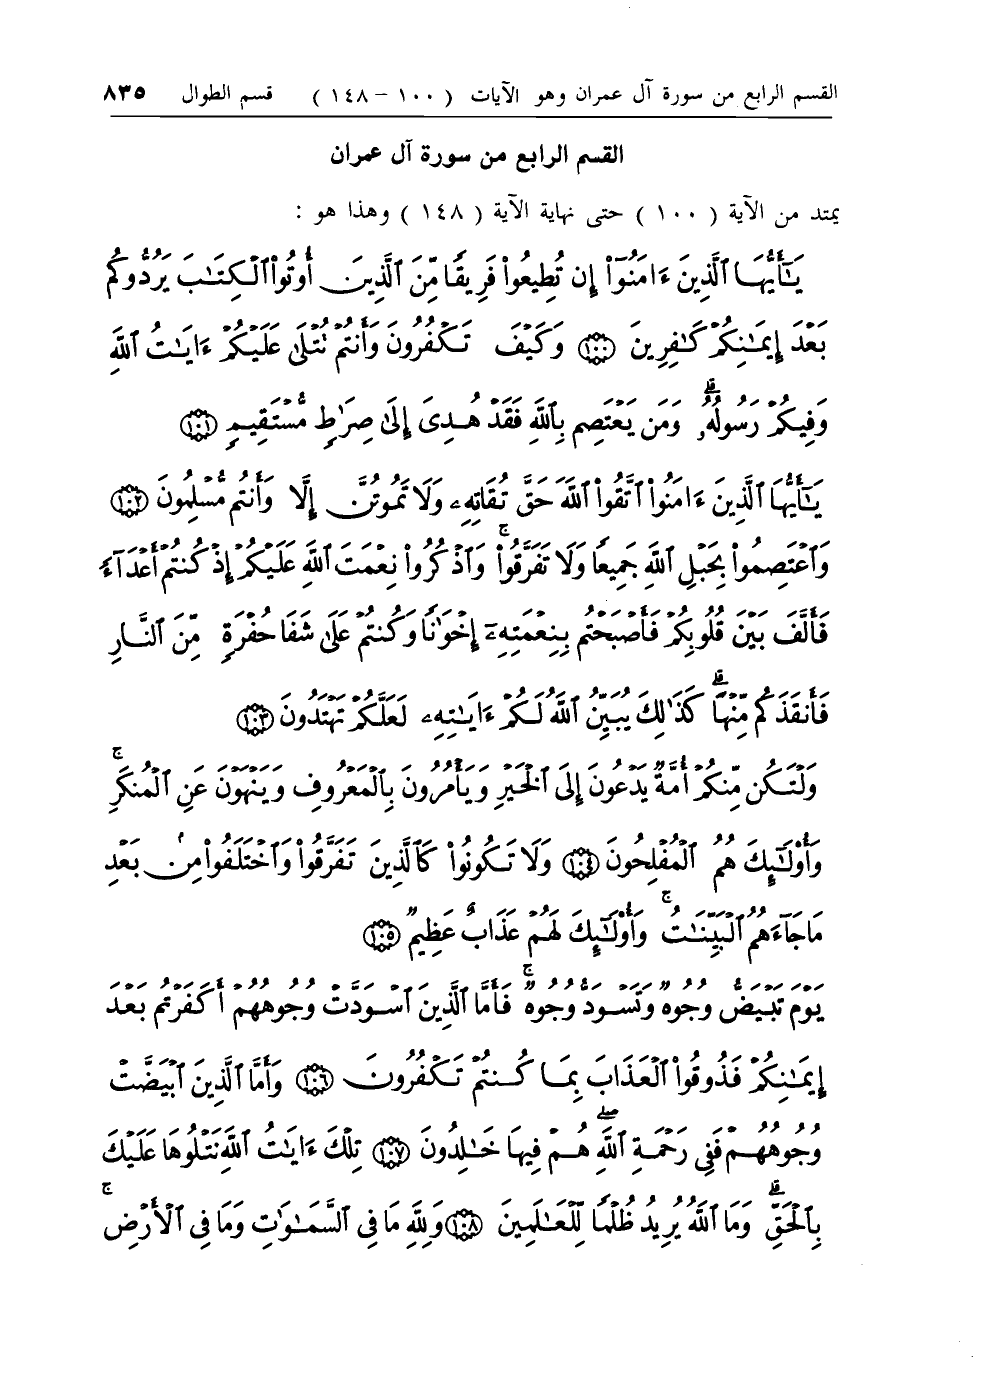 القسم الرابع من سورة آل عمران وهو الآيات ( ١٠٠ - ١٤٨ ) قسم الطوال ٨٣٥
القسم الرابع من سورة آل عمران
يمتد من الآية ( ١٠٠ ) حتى نهاية الآية ( ١٤٨ ) وهذا هو :
يَٰٓأَيُّهَا ٱلَّذِينَ ءَامَنُوٓا۟ إِن تُطِيعُوا۟ فَرِيقًا مِّنَ ٱلَّذِينَ أُوتُوا۟ ٱلْكِتَٰبَ يَرُدُّوكُم
بَعْدَ إِيمَٰنِكُمْ كَٰفِرِينَ ﴿١٠٠﴾ وَكَيْفَ تَكْفُرُونَ وَأَنتُمْ تُتْلَىٰ عَلَيْكُمْ ءَايَٰتُ ٱللَّهِ
وَفِيكُمْ رَسُولُهُۥ ۗ وَمَن يَعْتَصِم بِٱللَّهِ فَقَدْ هُدِىَ إِلَىٰ صِرَٰطٍ مُّسْتَقِيمٍ ﴿١٠١﴾
يَٰٓأَيُّهَا ٱلَّذِينَ ءَامَنُوا۟ ٱتَّقُوا۟ ٱللَّهَ حَقَّ تُقَاتِهِۦ وَلَا تَمُوتُنَّ إِلَّا وَأَنتُم مُّسْلِمُونَ ﴿١٠٢﴾
وَٱعْتَصِمُوا۟ بِحَبْلِ ٱللَّهِ جَمِيعًا وَلَا تَفَرَّقُوا۟ ۚ وَٱذْكُرُوا۟ نِعْمَتَ ٱللَّهِ عَلَيْكُمْ إِذْ كُنتُمْ أَعْدَآءً
فَأَلَّفَ بَيْنَ قُلُوبِكُمْ فَأَصْبَحْتُم بِنِعْمَتِهِۦٓ إِخْوَٰنًا وَكُنتُمْ عَلَىٰ شَفَا حُفْرَةٍ مِّنَ ٱلنَّارِ
فَأَنقَذَكُم مِّنْهَا ۗ كَذَٰلِكَ يُبَيِّنُ ٱللَّهُ لَكُمْ ءَايَٰتِهِۦ لَعَلَّكُمْ تَهْتَدُونَ ﴿١٠٣﴾
وَلْتَكُن مِّنكُمْ أُمَّةٌ يَدْعُونَ إِلَى ٱلْخَيْرِ وَيَأْمُرُونَ بِٱلْمَعْرُوفِ وَيَنْهَوْنَ عَنِ ٱلْمُنكَرِ ۚ
وَأُو۟لَٰٓئِكَ هُمُ ٱلْمُفْلِحُونَ ﴿١٠٤﴾ وَلَا تَكُونُوا۟ كَٱلَّذِينَ تَفَرَّقُوا۟ وَٱخْتَلَفُوا۟ مِنۢ بَعْدِ
مَا جَآءَهُمُ ٱلْبَيِّنَٰتُ ۚ وَأُو۟لَٰٓئِكَ لَهُمْ عَذَابٌ عَظِيمٌ ﴿١٠٥﴾
يَوْمَ تَبْيَضُّ وُجُوهٌ وَتَسْوَدُّ وُجُوهٌ ۚ فَأَمَّا ٱلَّذِينَ ٱسْوَدَّتْ وُجُوهُهُمْ أَكَفَرْتُم بَعْدَ
إِيمَٰنِكُمْ فَذُوقُوا۟ ٱلْعَذَابَ بِمَا كُنتُمْ تَكْفُرُونَ ﴿١٠٦﴾ وَأَمَّا ٱلَّذِينَ ٱبْيَضَّتْ
وُجُوهُهُمْ فَفِى رَحْمَةِ ٱللَّهِ ۖ هُمْ فِيهَا خَٰلِدُونَ ﴿١٠٧﴾ تِلْكَ ءَايَٰتُ ٱللَّهِ نَتْلُوهَا عَلَيْكَ
بِٱلْحَقِّ ۗ وَمَا ٱللَّهُ يُرِيدُ ظُلْمًا لِّلْعَٰلَمِينَ ﴿١٠٨﴾ وَلِلَّهِ مَا فِى ٱلسَّمَٰوَٰتِ وَمَا فِى ٱلْأَرْضِ ۚ